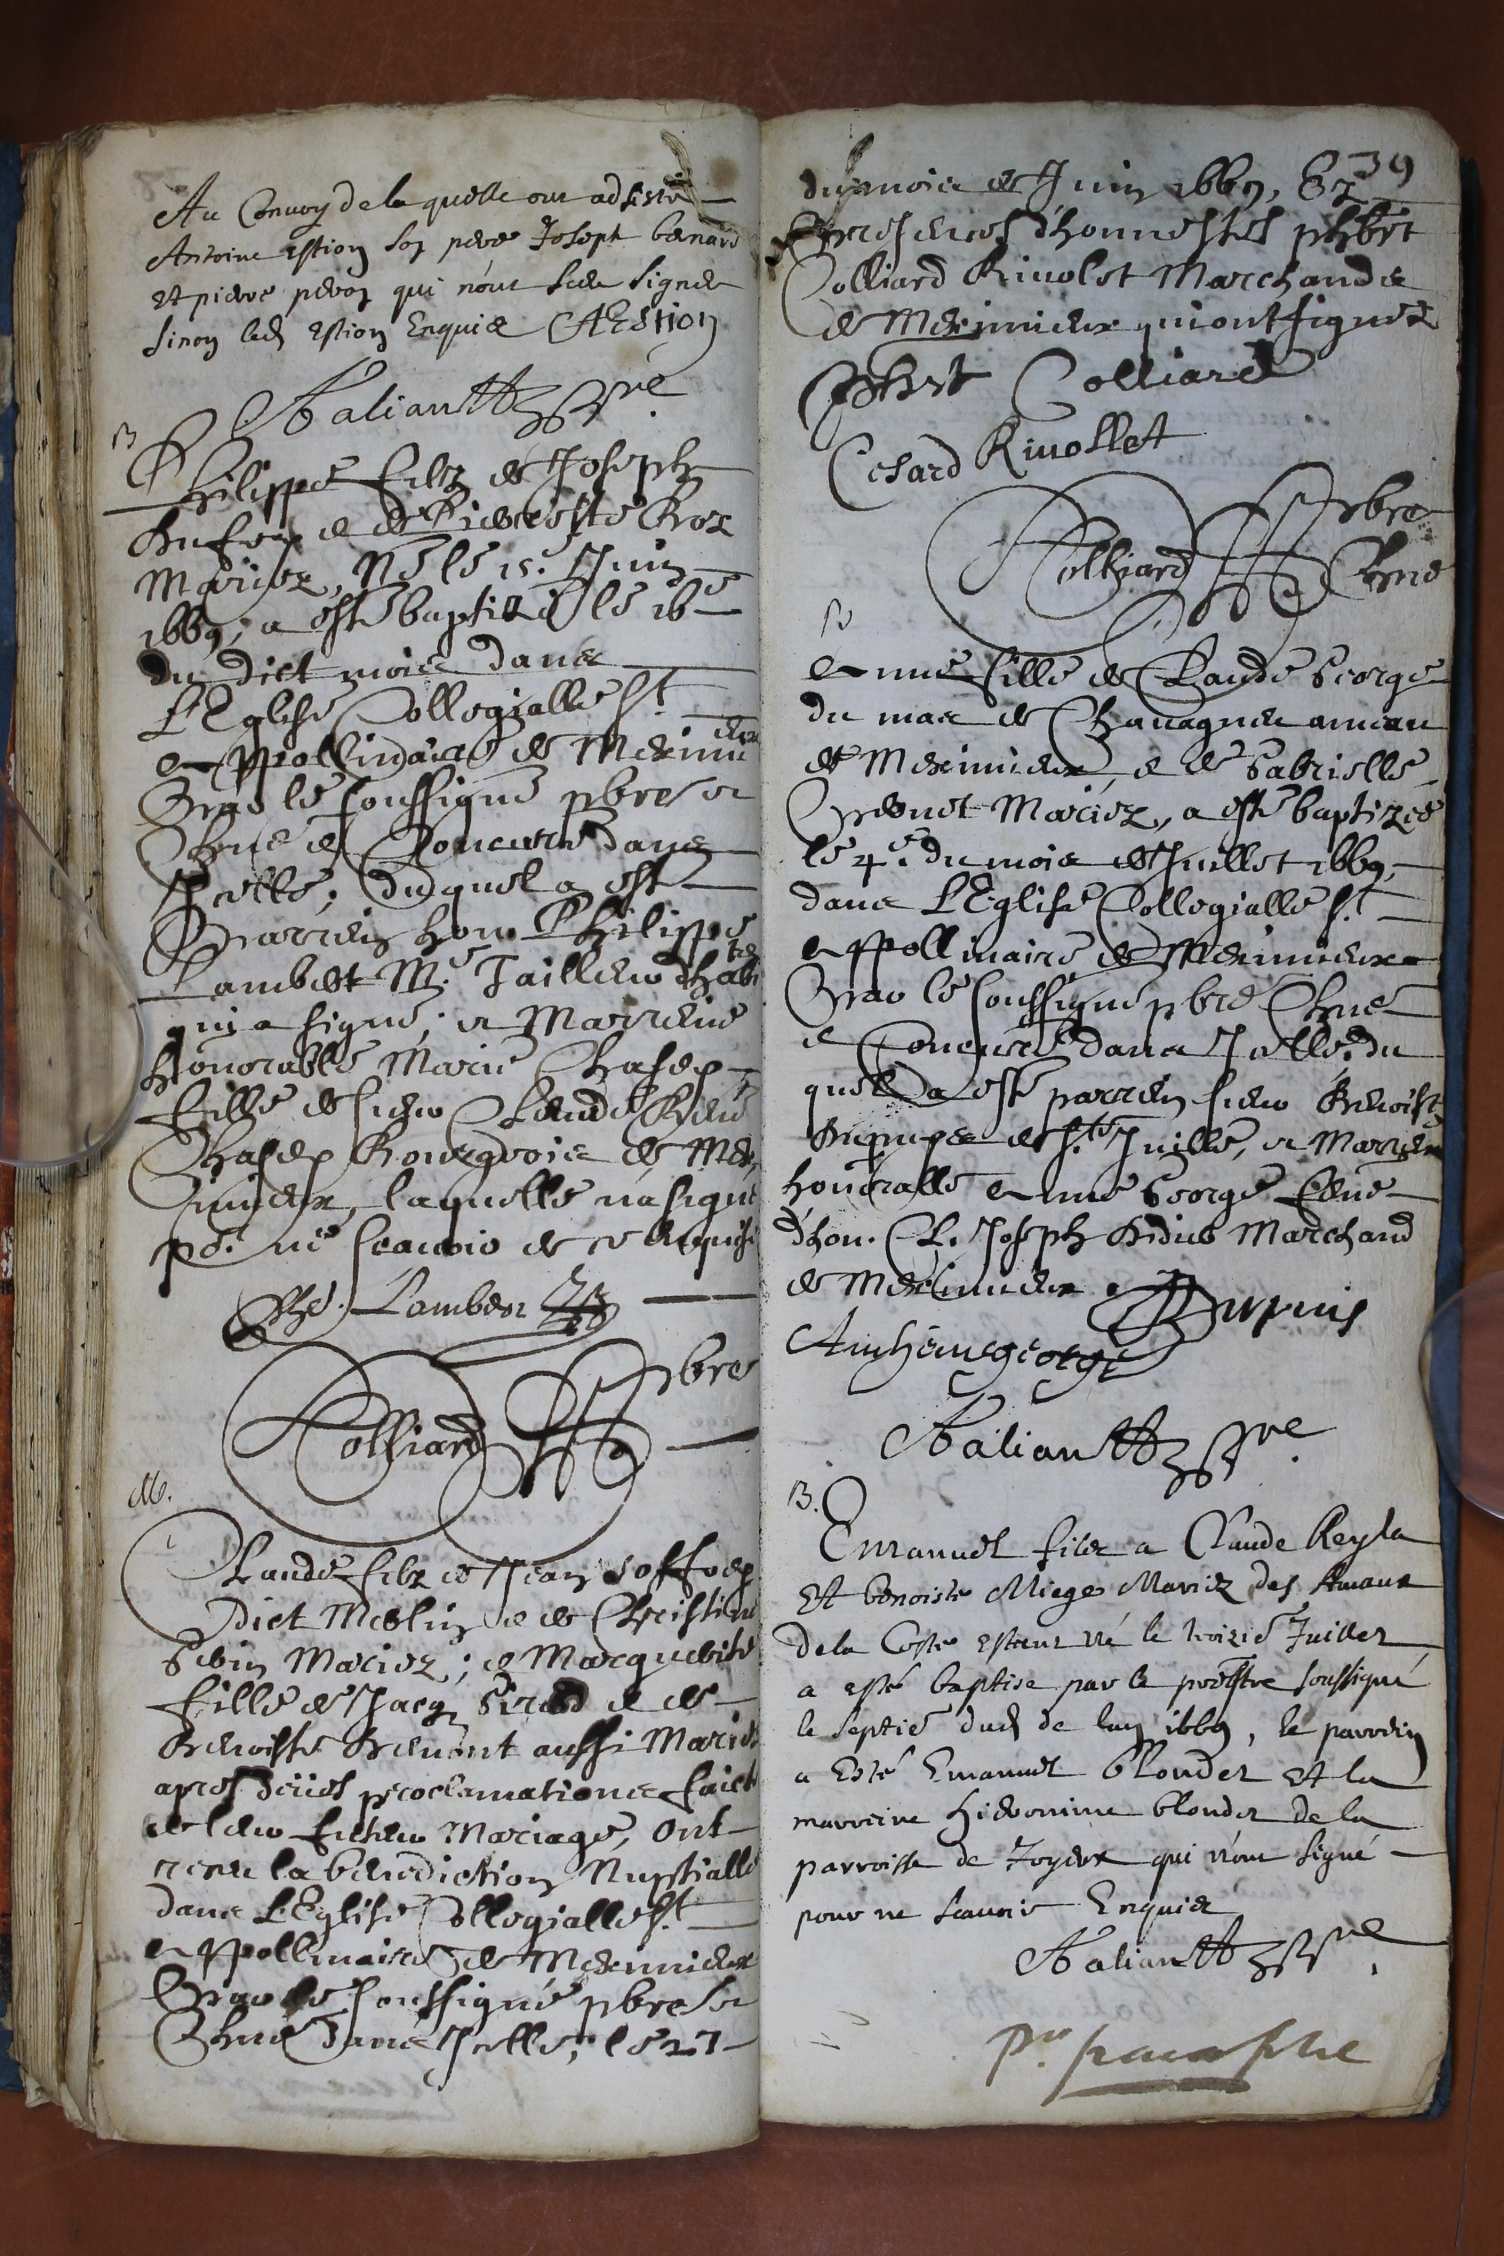 Au Convoy de la quelle ont adsisté
Antoine estion son pere Josept benard
et pierre peron qui n'ont sceu signer
sinon led estion Enquis AEstion
Valiantt pbre
B
Philippe filz de Joseph
et de Pierreste
Mariez, Né le 15.e Juin
1669, a esté baptizé le 16e
du dict mois dans
L'Eglise Collegialle St
Appollinaire de Meximieux
Par le soussigné pbre et
Chne et Concuré dans
Icelle; duquel a esté
Parrein hon. Philippe
Lambert M.e Tailleur d'habtz
qui a signé; et Marreine
Honorable Marie Chasey
fille de sieur Claude René
Chasey Bourgeois de Mex
imieux, laquelle n'a signé
po.r ne scavoir de ce enquise
Phe. Lambert
Colliard pbre
M.
Claude filz de Jean Joffrey
dict Meslin et de Christine
Sevin Mariez; et Marguerite
fille de Jacq Girod et de
Benoiste Benont aussi Mariez
apres deües proclamations faictes
de leur futeur Mariage, ont
receu la benediction Nuptialle
dans L'Eglise Collegialle St
Appollinaire de Meximieux
Par le soussigné pbre et
Chne dans Icelle; le 27
39
du mois de Juin 1669, Ez
Presences d'honnestes phbert
Colliard Rivolet Marchands
de Meximieux qui ont signez
Phbert Colliard
Cesard Rivollet
Colliard Pbre Chne
B
Anne fille de Claude George
du mas de Chavagneu
de Meximieux, et de Gabrielle
Prevnet Mariez, a esté baptizee
le 4.e du mois de Juillet 1669,
dans L'Eglise Collegialle St
Appollinaire de Meximieux
Par le soussigné pbre Chne
et Concuré dans Icelle: du
quel a esté parrein sieur Benoist
Dupupes de St. Jullle, et Marreine
honoralle Anne George feme
d'hon. Cl. Joseph Didier Marchand
de Meximieux
Dupuis
Antheinegeorge
Valiantt pbre
B.
Emanuel filz a Claude Reyla
Et benoiste Miege Mariez des Amaux
de la Coste estant né le troizie Juillet
a esté baptise par le prestre soussigné
le septie dud de lan 1669, le parrein
a Esté Emanuel blondet Et la
marreine hieronime blondet de la
parroisse de Joyeux qui n'ont signé
pour ne scavoir Enquis
Valiantt pbre
Pr. paraphe